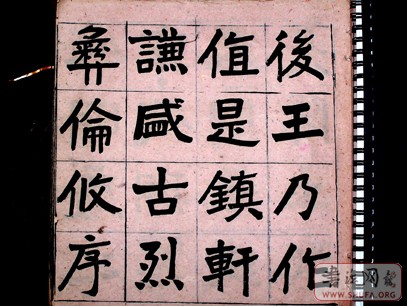 後王乃作
值是鎮軒
謙感古烈
彝倫攸序
书法网报
WWW.SKUFA.ORG